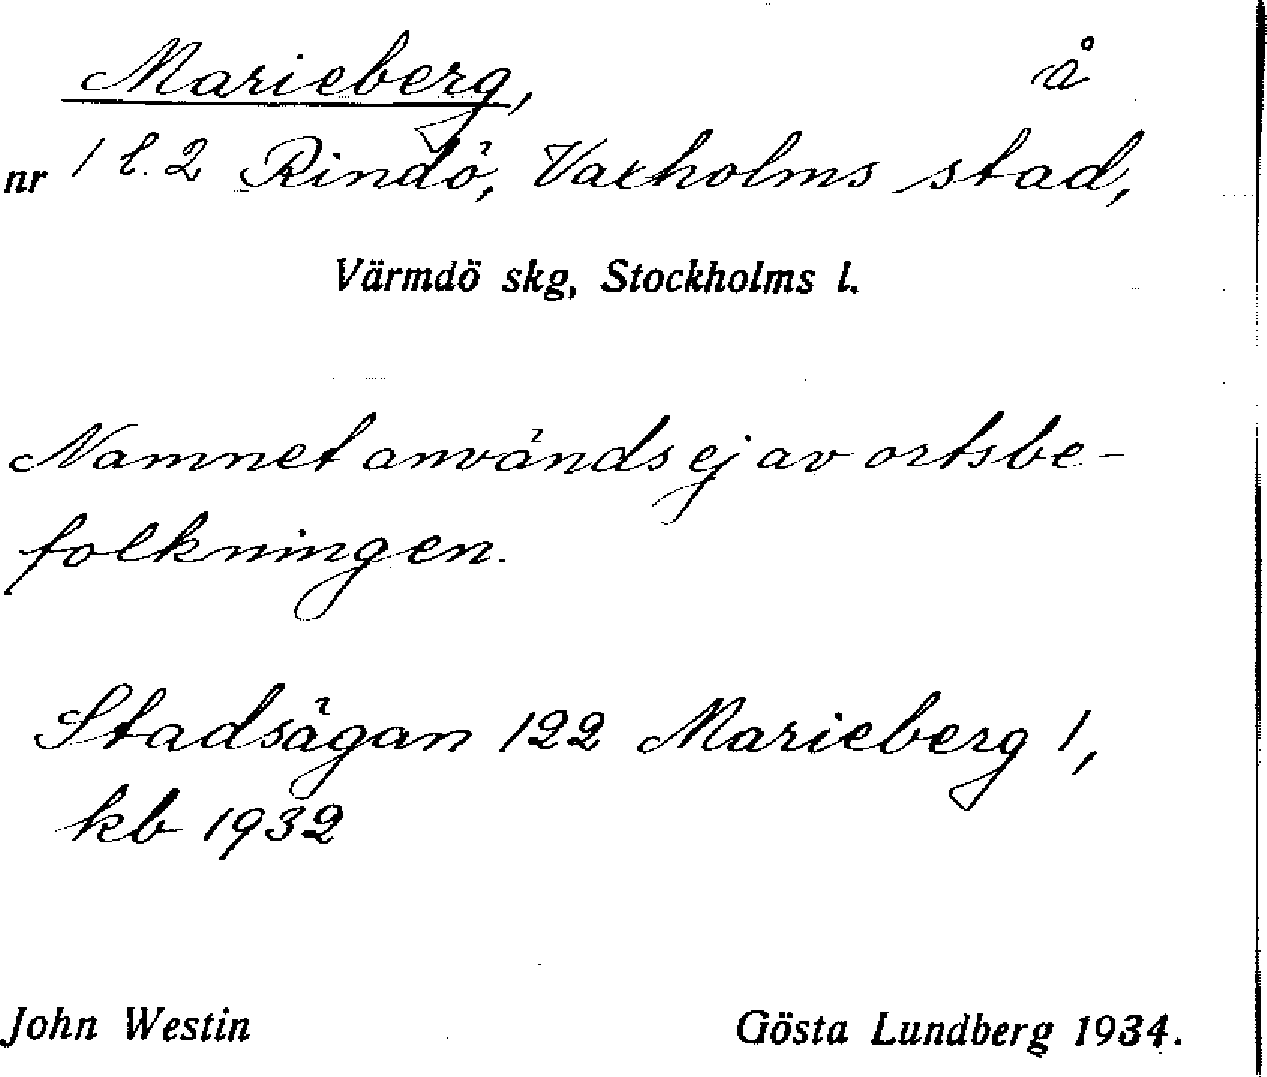 Marieberg, å
nr 1 l. 2 Rindö, Vaxholms stad,
Värmdö skg, Stockholms l.
Namnet användes ej av ortsbe-
folkningen.
Stadsägan 122 Marieberg 1,
kb 1932
John Westin Gösta Lundberg 1934.